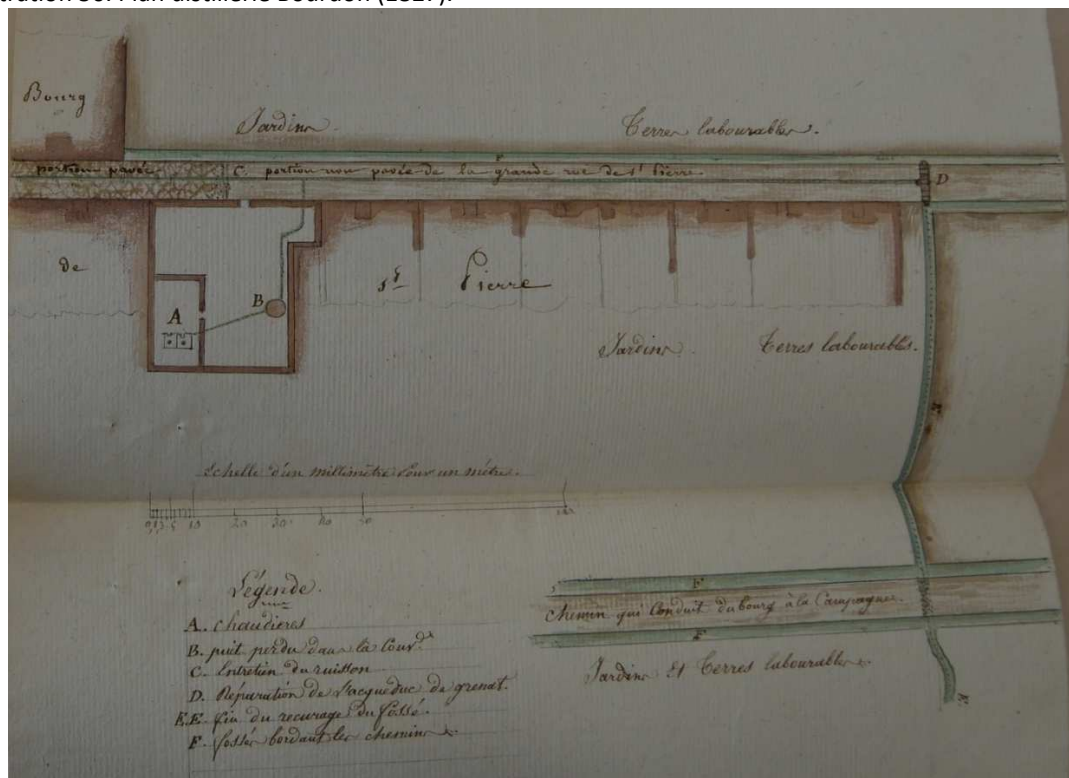 Plan distillerie Bourdon
Bourg
Jardins.
Terres labourables.
portion pavée
C. portion non pavée de la grande rue de St Pierre.
F
D
de
St Pierre
B
A
Jardins.
Terres labourables.
E
Echelle d'un millimètre pour un mètre.
10 20 30 40 50 100
Légende.
A. Chaudieres
B. puit perdu dans la Cour.
C. Entretien du ruisson
D. Réparation de l'acqueduc de grenat.
E.E. fin du recurage du fossé.
F. fossés bordant les chemins
F
Chemin qui Conduit du bourg à la Campagne.
F
Jardins Et Terres labourables
E.